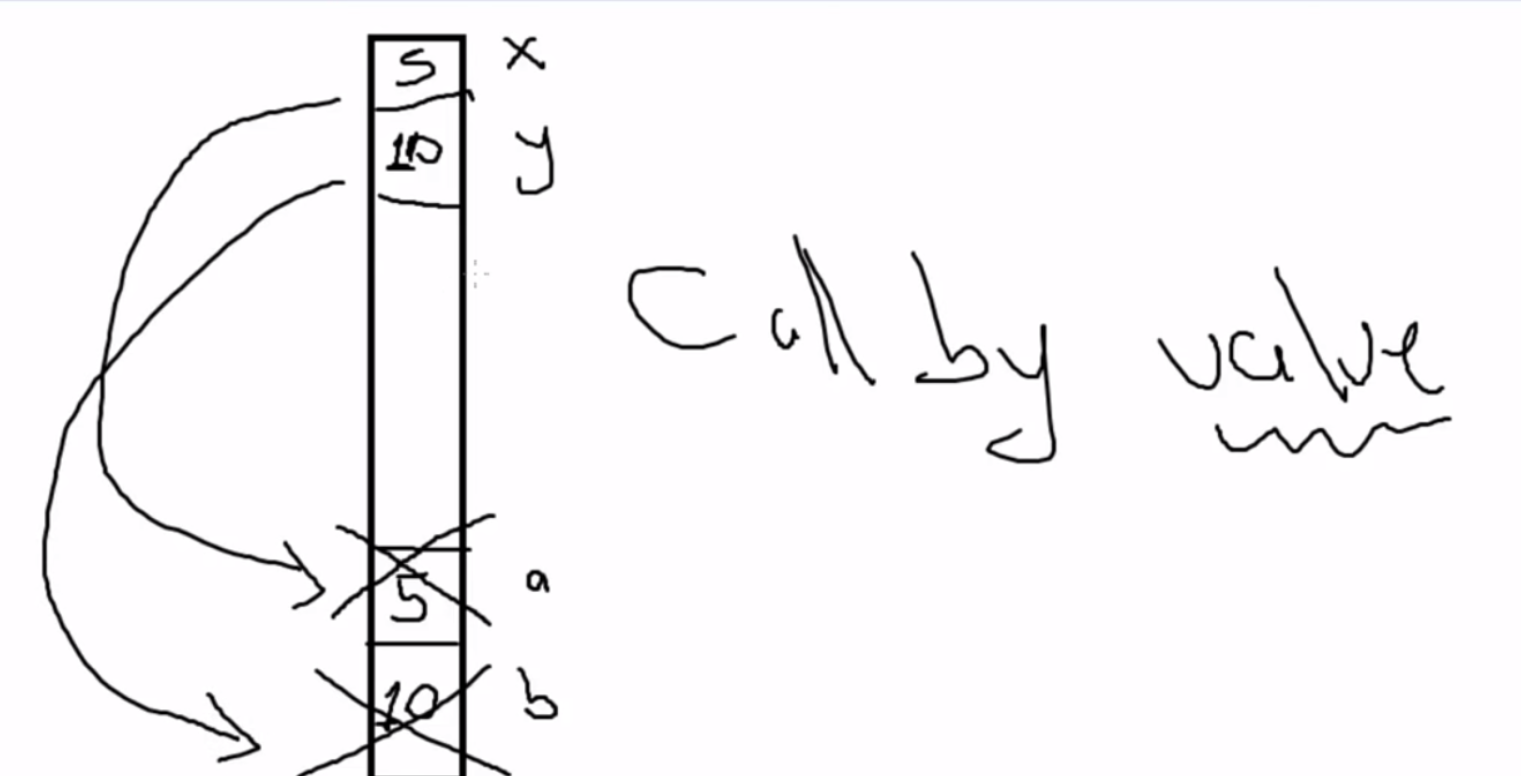 5 x
10 y
Call by value
5 a
10 b